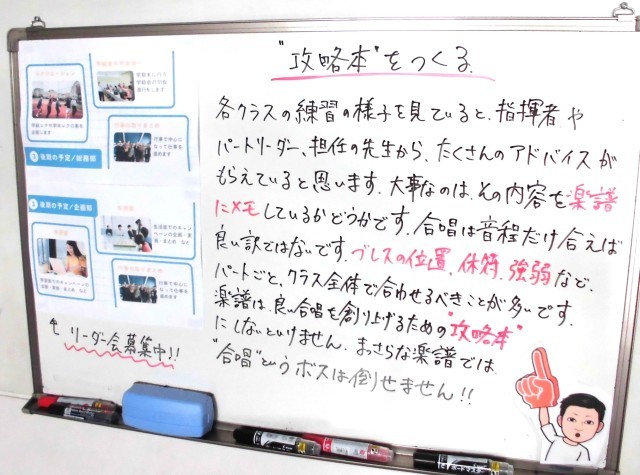 "攻略本"をつくる.
各クラスの練習の様子を見ていると、指揮者や
パートリーダー、担任の先生から、たくさんのアドバイスが
もらえていると思います。大事なのは、その内容を楽譜
にメモしているかどうかです。合唱は音程だけ合えば
良い訳ではないです。ブレスの位置、休符、強弱など、
パートごと、クラス全体で合わせるべきことが多いです。
楽譜は、良い合唱を創り上げるための"攻略本"
にしないといけません。まっさらな楽譜では、
"合唱"というボスは倒せません!!
後期の予定/総務部
後期の予定/企画部
行事で中心に
なって仕事を
進めます
リーダー会募集中!!